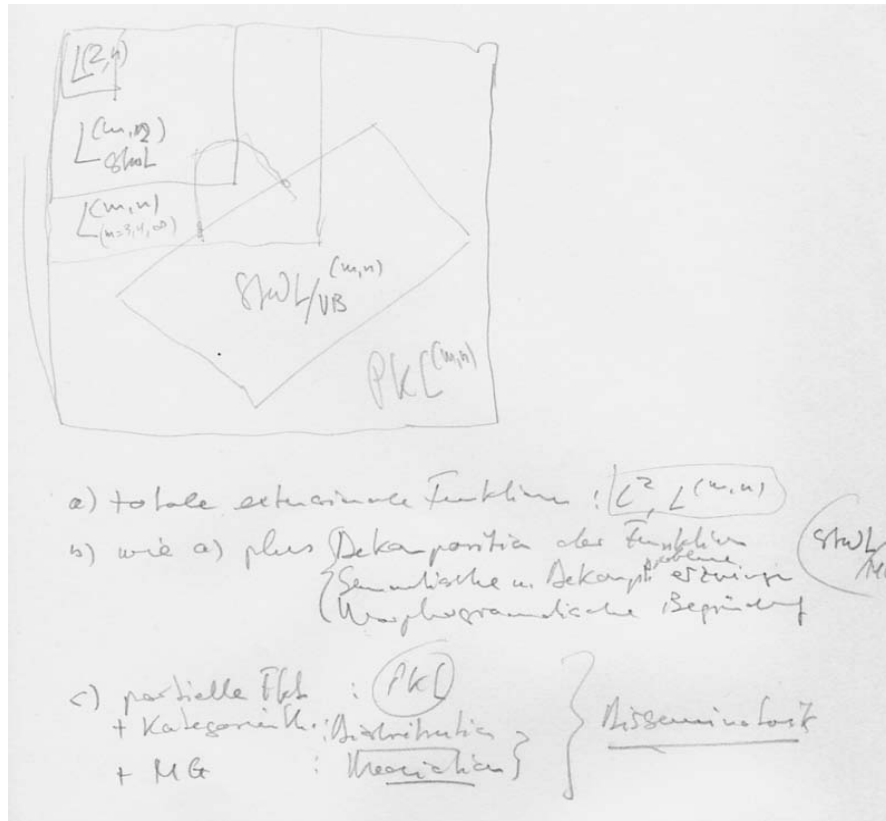 L(2,n)
L(m,n)
StwL
L(m,n)
(m=3,4,∞)
StwL/VB(m,n)
PKL(m,n)
a) totale extensionale Funktionen : L², L(m,n)
b) wie a) plus Dekomposition der Funktionen
StwL/
Semantische u. Dekomp.probleme erzwingen
Morphogrammatische Begründung
c) partielle Fkt. : PKL
+ Kategorienth. : Distribution
Disseminatorik
+ MG : Mediation